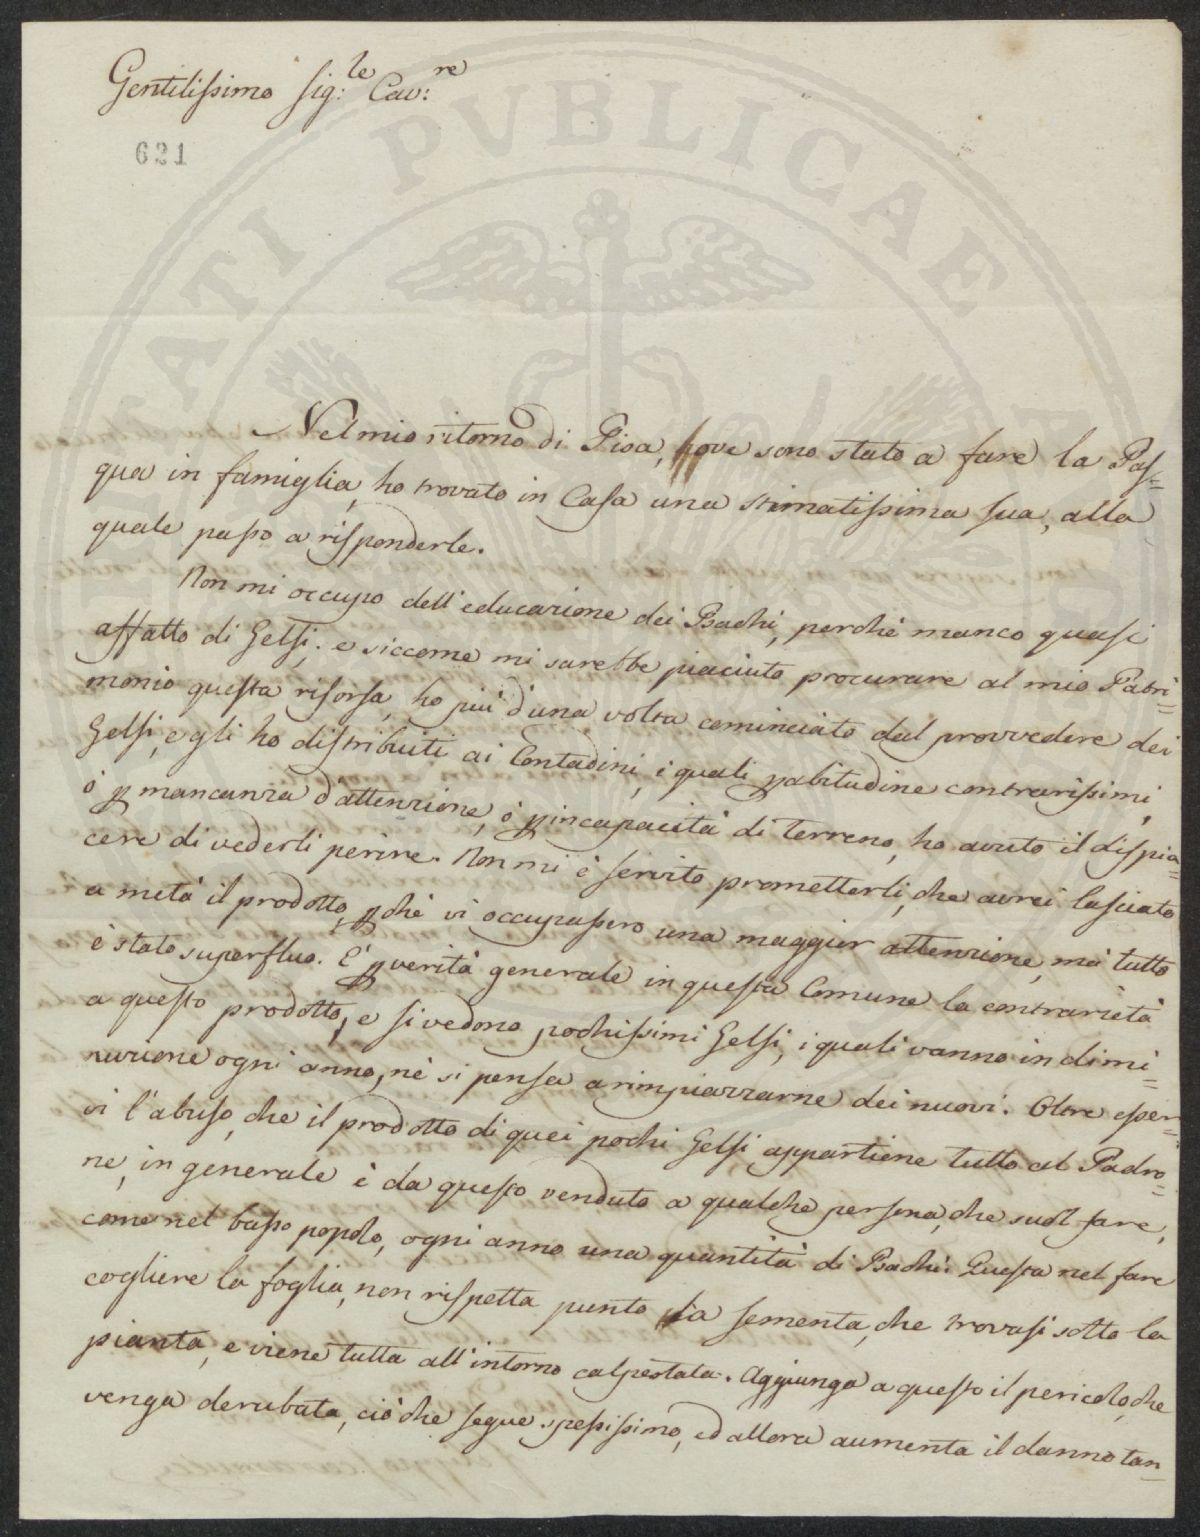 Gentilissimo Sig:le Cav:re
621
Nel mio ritorno di Pisa, ove sono stato a fare la Pas=
qua in famiglia, ho trovato in Casa una stimatissima sua, alla
quale passo a risponderle.
Non mi occupo dell'educazione dei Bachi, perchè manco quasi
affatto di Gelsi; e siccome mi sarebbe piaciuto procurare al mio Patri=
monio questa risorsa, ho più d'una volta cominciato dal provvedere dei
Gelsi, e gli ho distribuiti ai Contadini, i quali p abitudine contrarissimi,
ò p mancanza d'attenzione, ò p incapacità di terreno, ho avuto il dispia=
cere di vederli perire. Non mi è servito prometterli, che avrei lasciato
a metà il prodotto, pchè vi occupassero una maggior attenzione, ma tutto
è stato superfluo. E' p verità generale in questa Comune la contrarietà
a questo prodotto, e si vedono pochissimi Gelsi, i quali vanno in dimi=
nuzione ogni anno, nè si pensa a rimpiazzarne dei nuovi. Oltre esser=
vi l'abuso, che il prodotto di quei pochi Gelsi appartiene tutto al Padro=
ne, in generale è da questo venduto a qualche persona, che suol fare,
come nel basso popolo, ogni anno una quantità di Bachi. Questa nel fare
cogliere la foglia, non rispetta punto la sementa, che trovasi sotto la
pianta, e viene tutta all'intorno calpestata. Aggiunga a questo il pericolo, che
venga derubata, ciò che segue spessissimo, ed allora aumenta il danno tan=
PVBLICAE